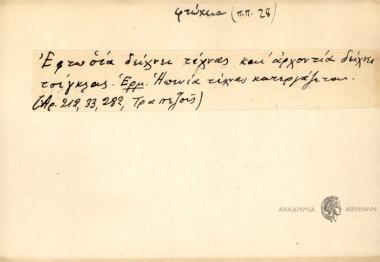 φτώχεια (π.π. 28)
Ἑ φτωσ̌ία δείχνει τέχνας και ἀρχοντία δείχνει
τσίγκλας. Ἑρμ. Ἡ πενία τέχνας κατεργάζεται.
(Ἀρ. 212, 33, 282, Τραπεζοῦς)
ΑΚΑΔΗΜΙΑ ΑΘΗΝΩΝ